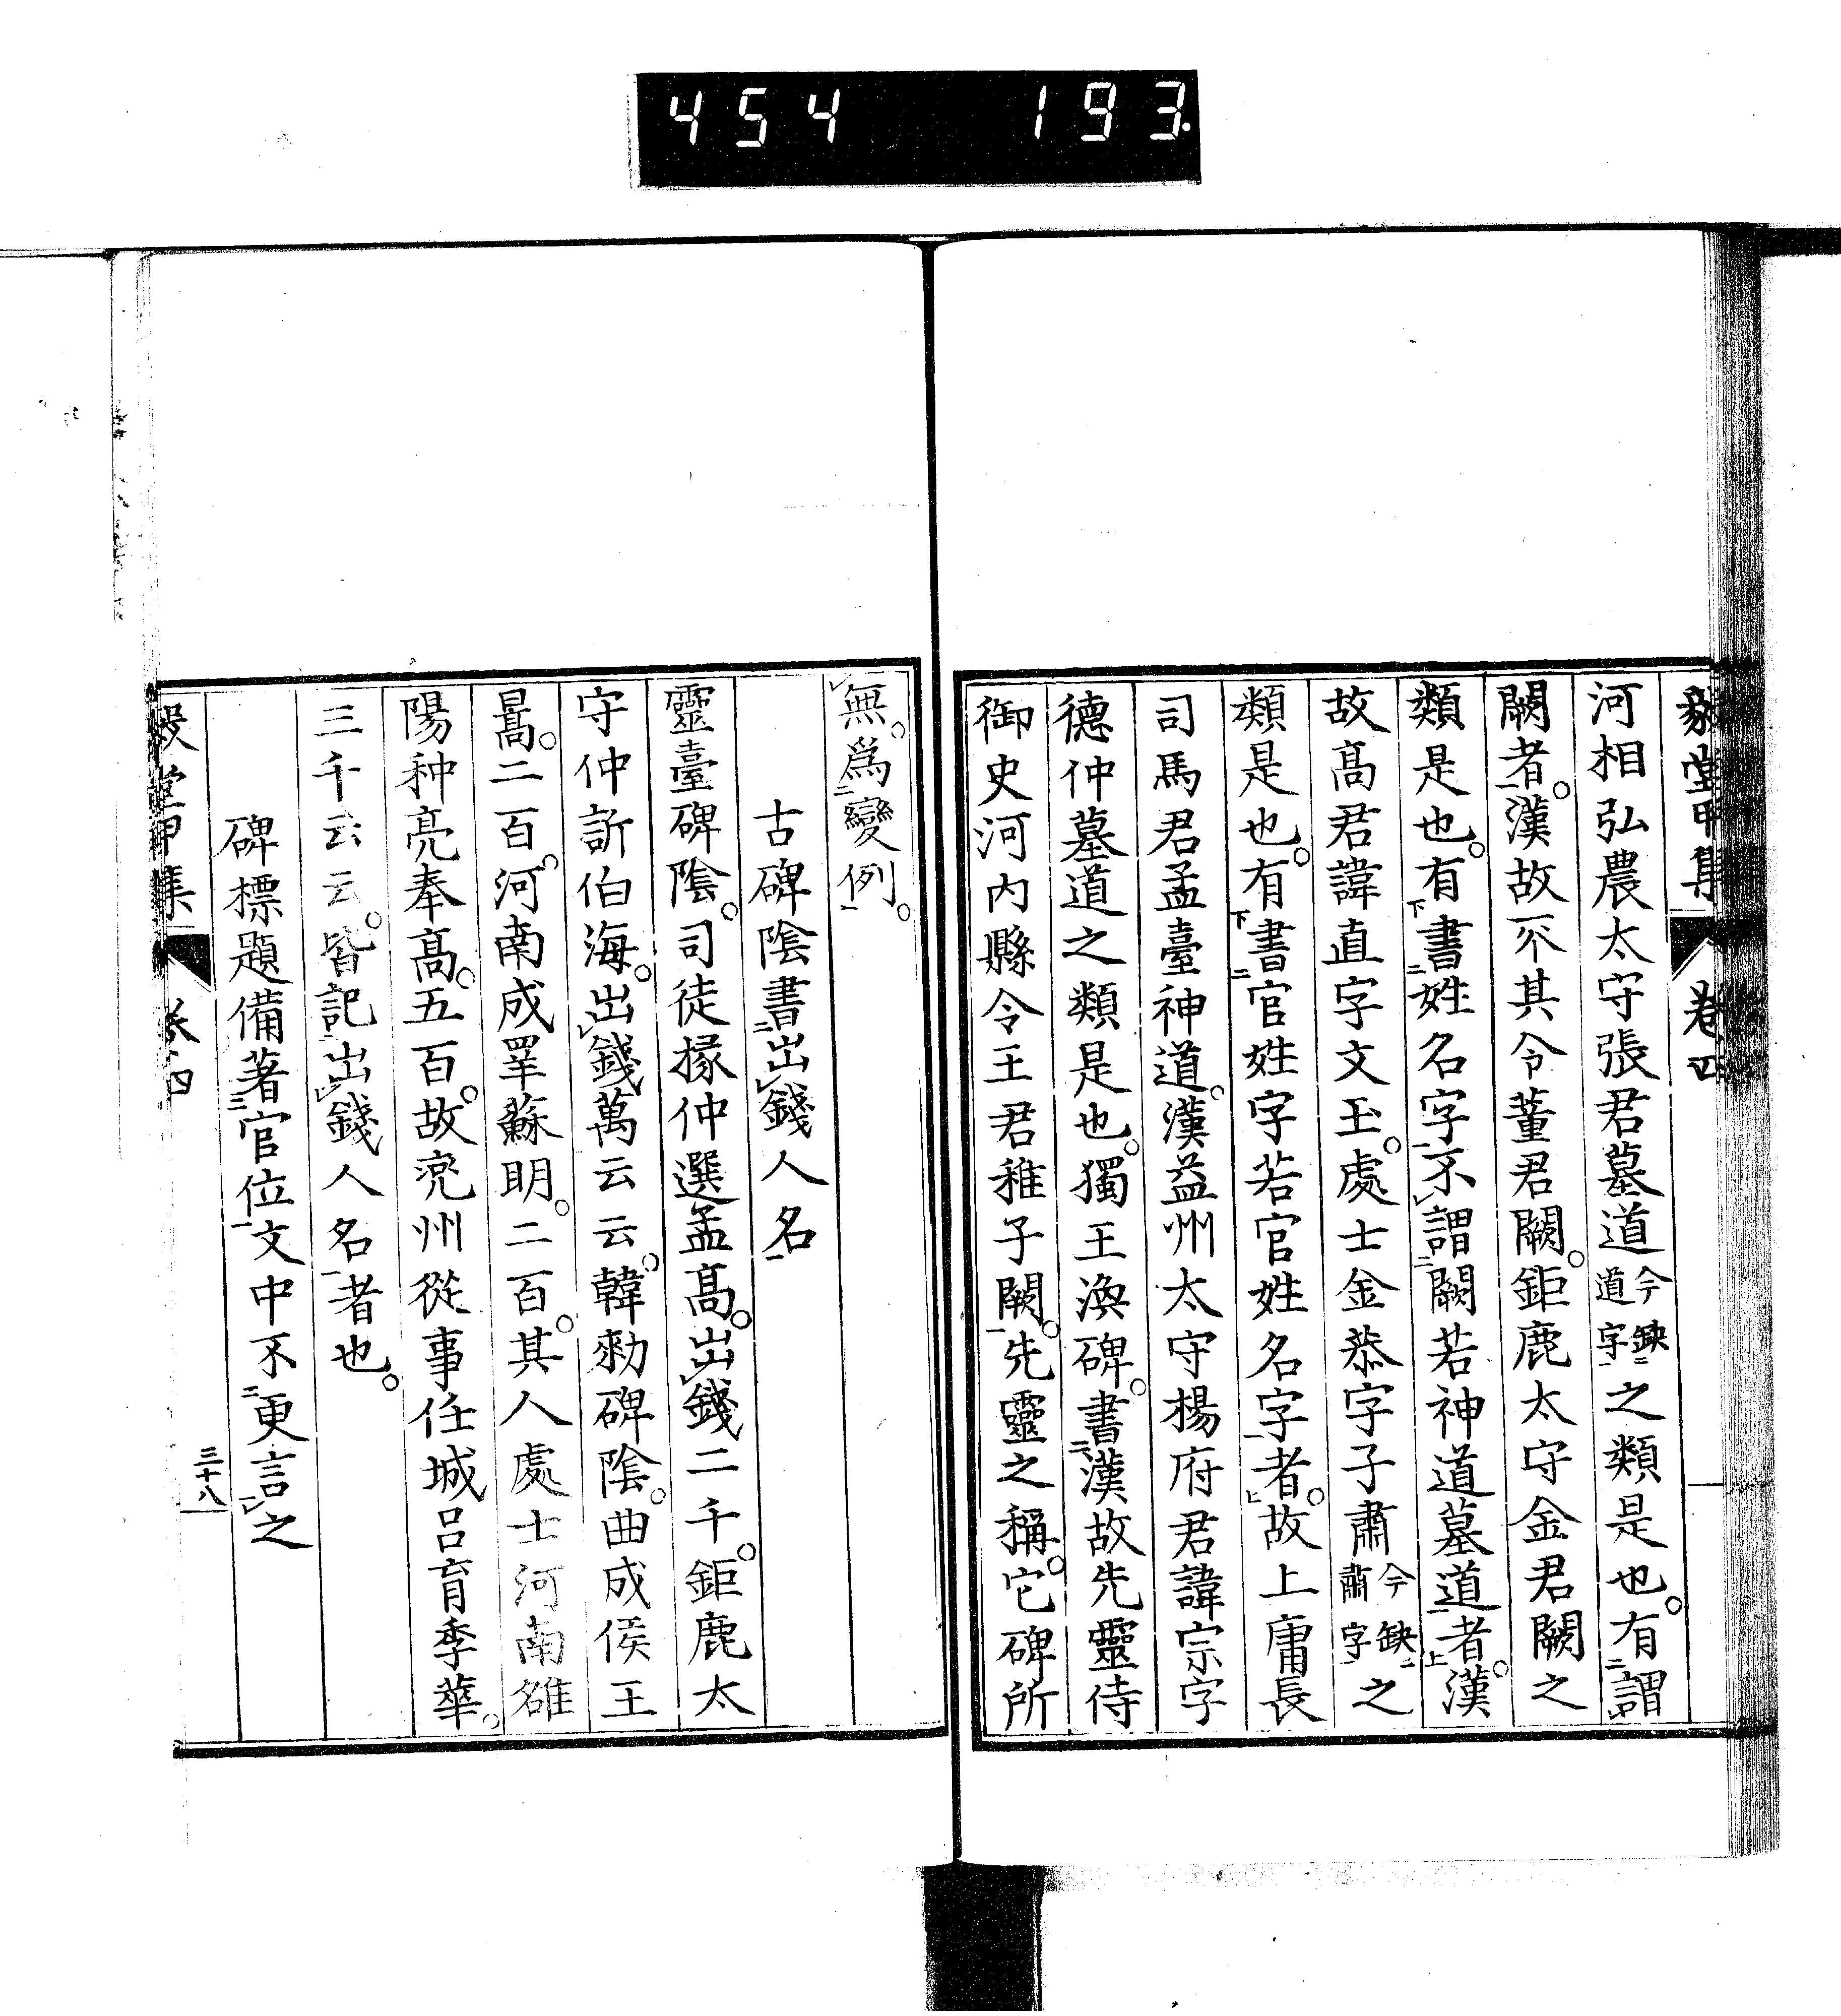 454 193.
毅堂甲集 卷四
河相弘農太守張君墓道今缺道字之類是也。有謂
闕者。漢故不其令董君闕。鉅鹿太守金君闕之
類是也。有書姓名字不謂闕若神道墓道者。漢
故高君諱直字文玉。處士金恭字子肅今缺肅字之
類是也。有書官姓字若官姓名字者。故上庸長
司馬君孟臺神道。漢益州太守楊府君諱宗字
德仲墓道之類是也。獨王渙碑。書漢故先靈侍
御史河內縣令王君稚子闕。先靈之稱。它碑所
無。爲變例。
古碑陰書出錢人名
靈臺碑陰。司徒掾仲選孟高。出錢二千。鉅鹿太
守仲訢伯海。出錢萬云云。韓勑碑陰。曲成侯王
暠。二百。河南成睪蘇明。二百。其人處士河南雒
陽种亮奉高。五百。故兗州從事任城呂育季華。
三千云云。皆記出錢人名者也。
碑標題備著官位文中不更言之
三十八
毅堂甲集 卷四